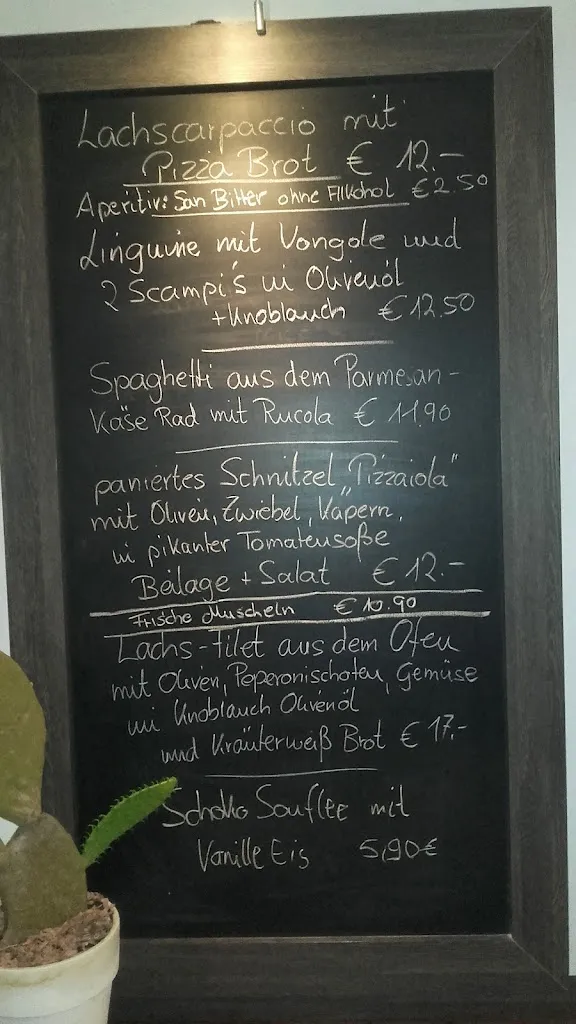 Lachscarpaccio mit
Pizza Brot € 12.-
Aperitiv: San Bitter ohne Allkohol €2.50
Linguine mit Vongole und
2 Scampi's in Olivenöl
+Knoblauch €12.50
Spaghetti aus dem Parmesan-
Käse Rad mit Rucola € 11.90
paniertes Schnitzel "Pizzaiola"
mit Oliven, Zwiebel, Kapern,
in pikanter Tomatensoße
Beilage + Salat € 12.-
Frische Muscheln € 10.90
Lachs-Filet aus dem Ofen
mit Oliven, Peperonischoten, Gemüse
in Knoblauch Olivenöl
und Kräuterweiß Brot € 17.-
Schoko Souflee mit
Vanille Eis 5,90€